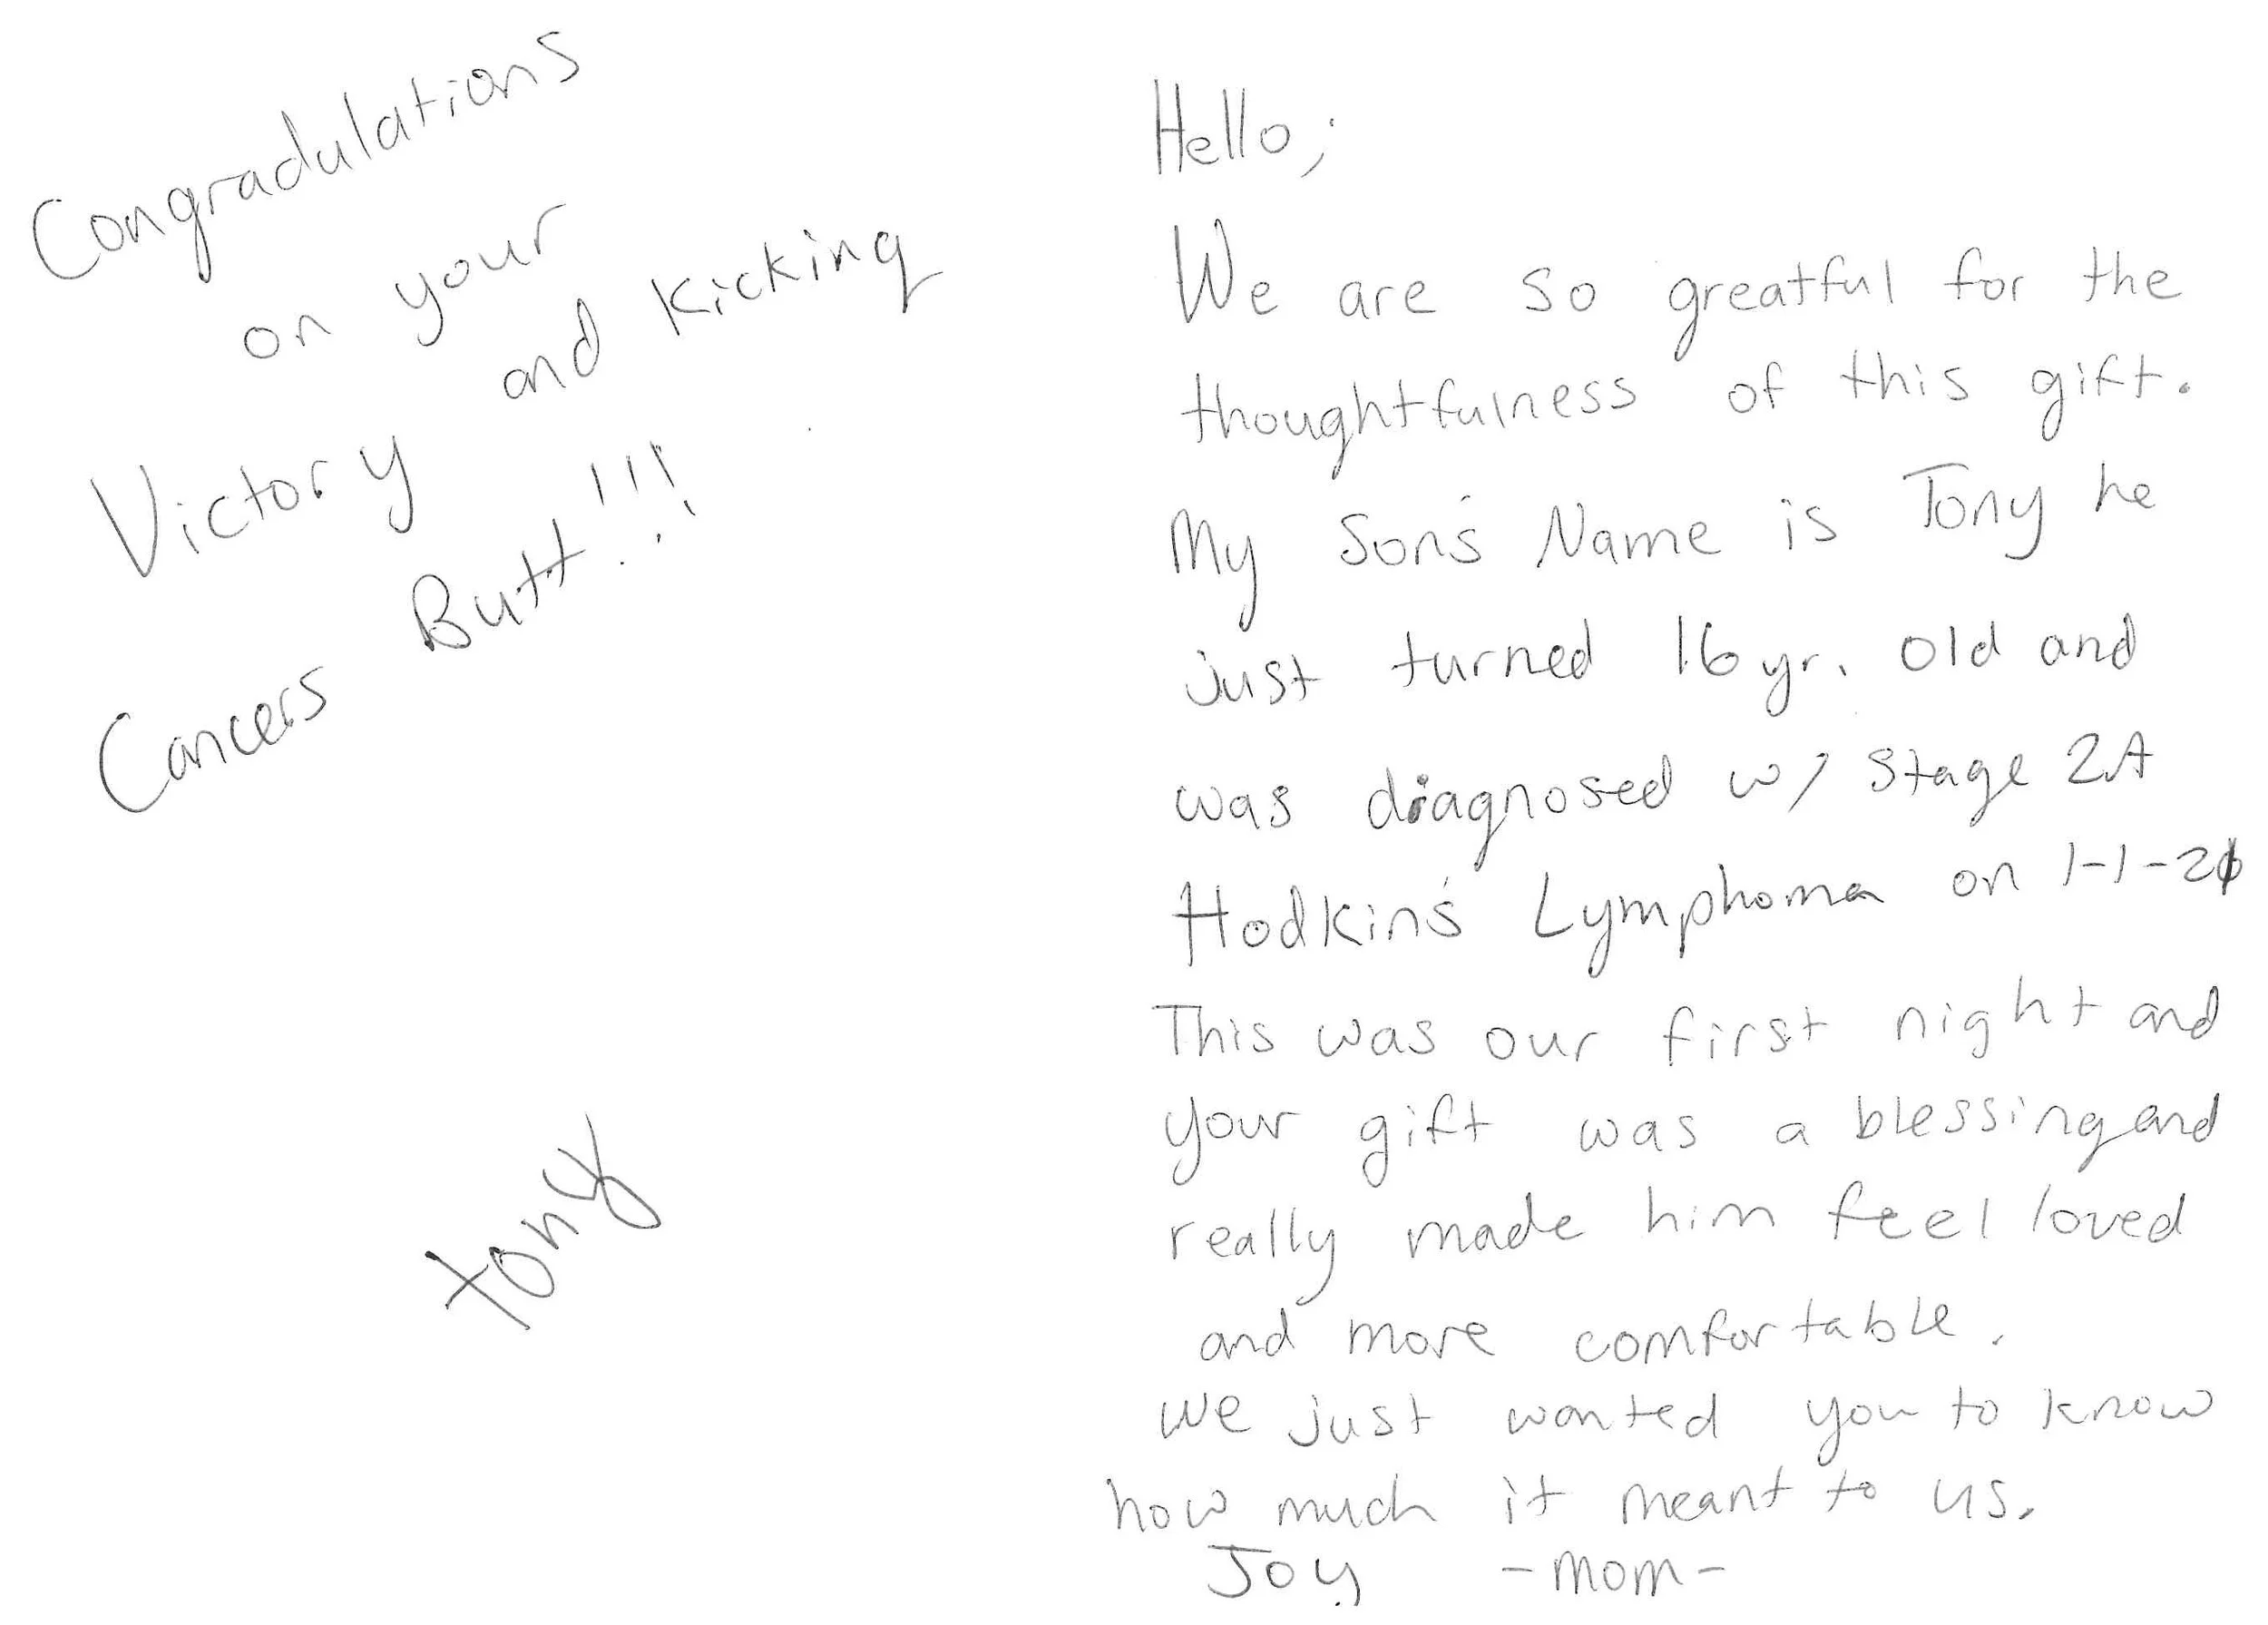 Congradulations
on your
Victory and Kicking
Cancers Butt!!!
tony
Hello;
We are so greatful for the
thoughtfulness of this gift.
My Son's Name is Tony he
just turned 16 yr. old and
was diagnosed w/ stage 2A
Hodkin's Lymphoma on 1-1-21
This was our first night and
your gift was a blessing and
really made him feel loved
and more comfortable.
We just wanted you to know
how much it meant to us.
Joy -mom-